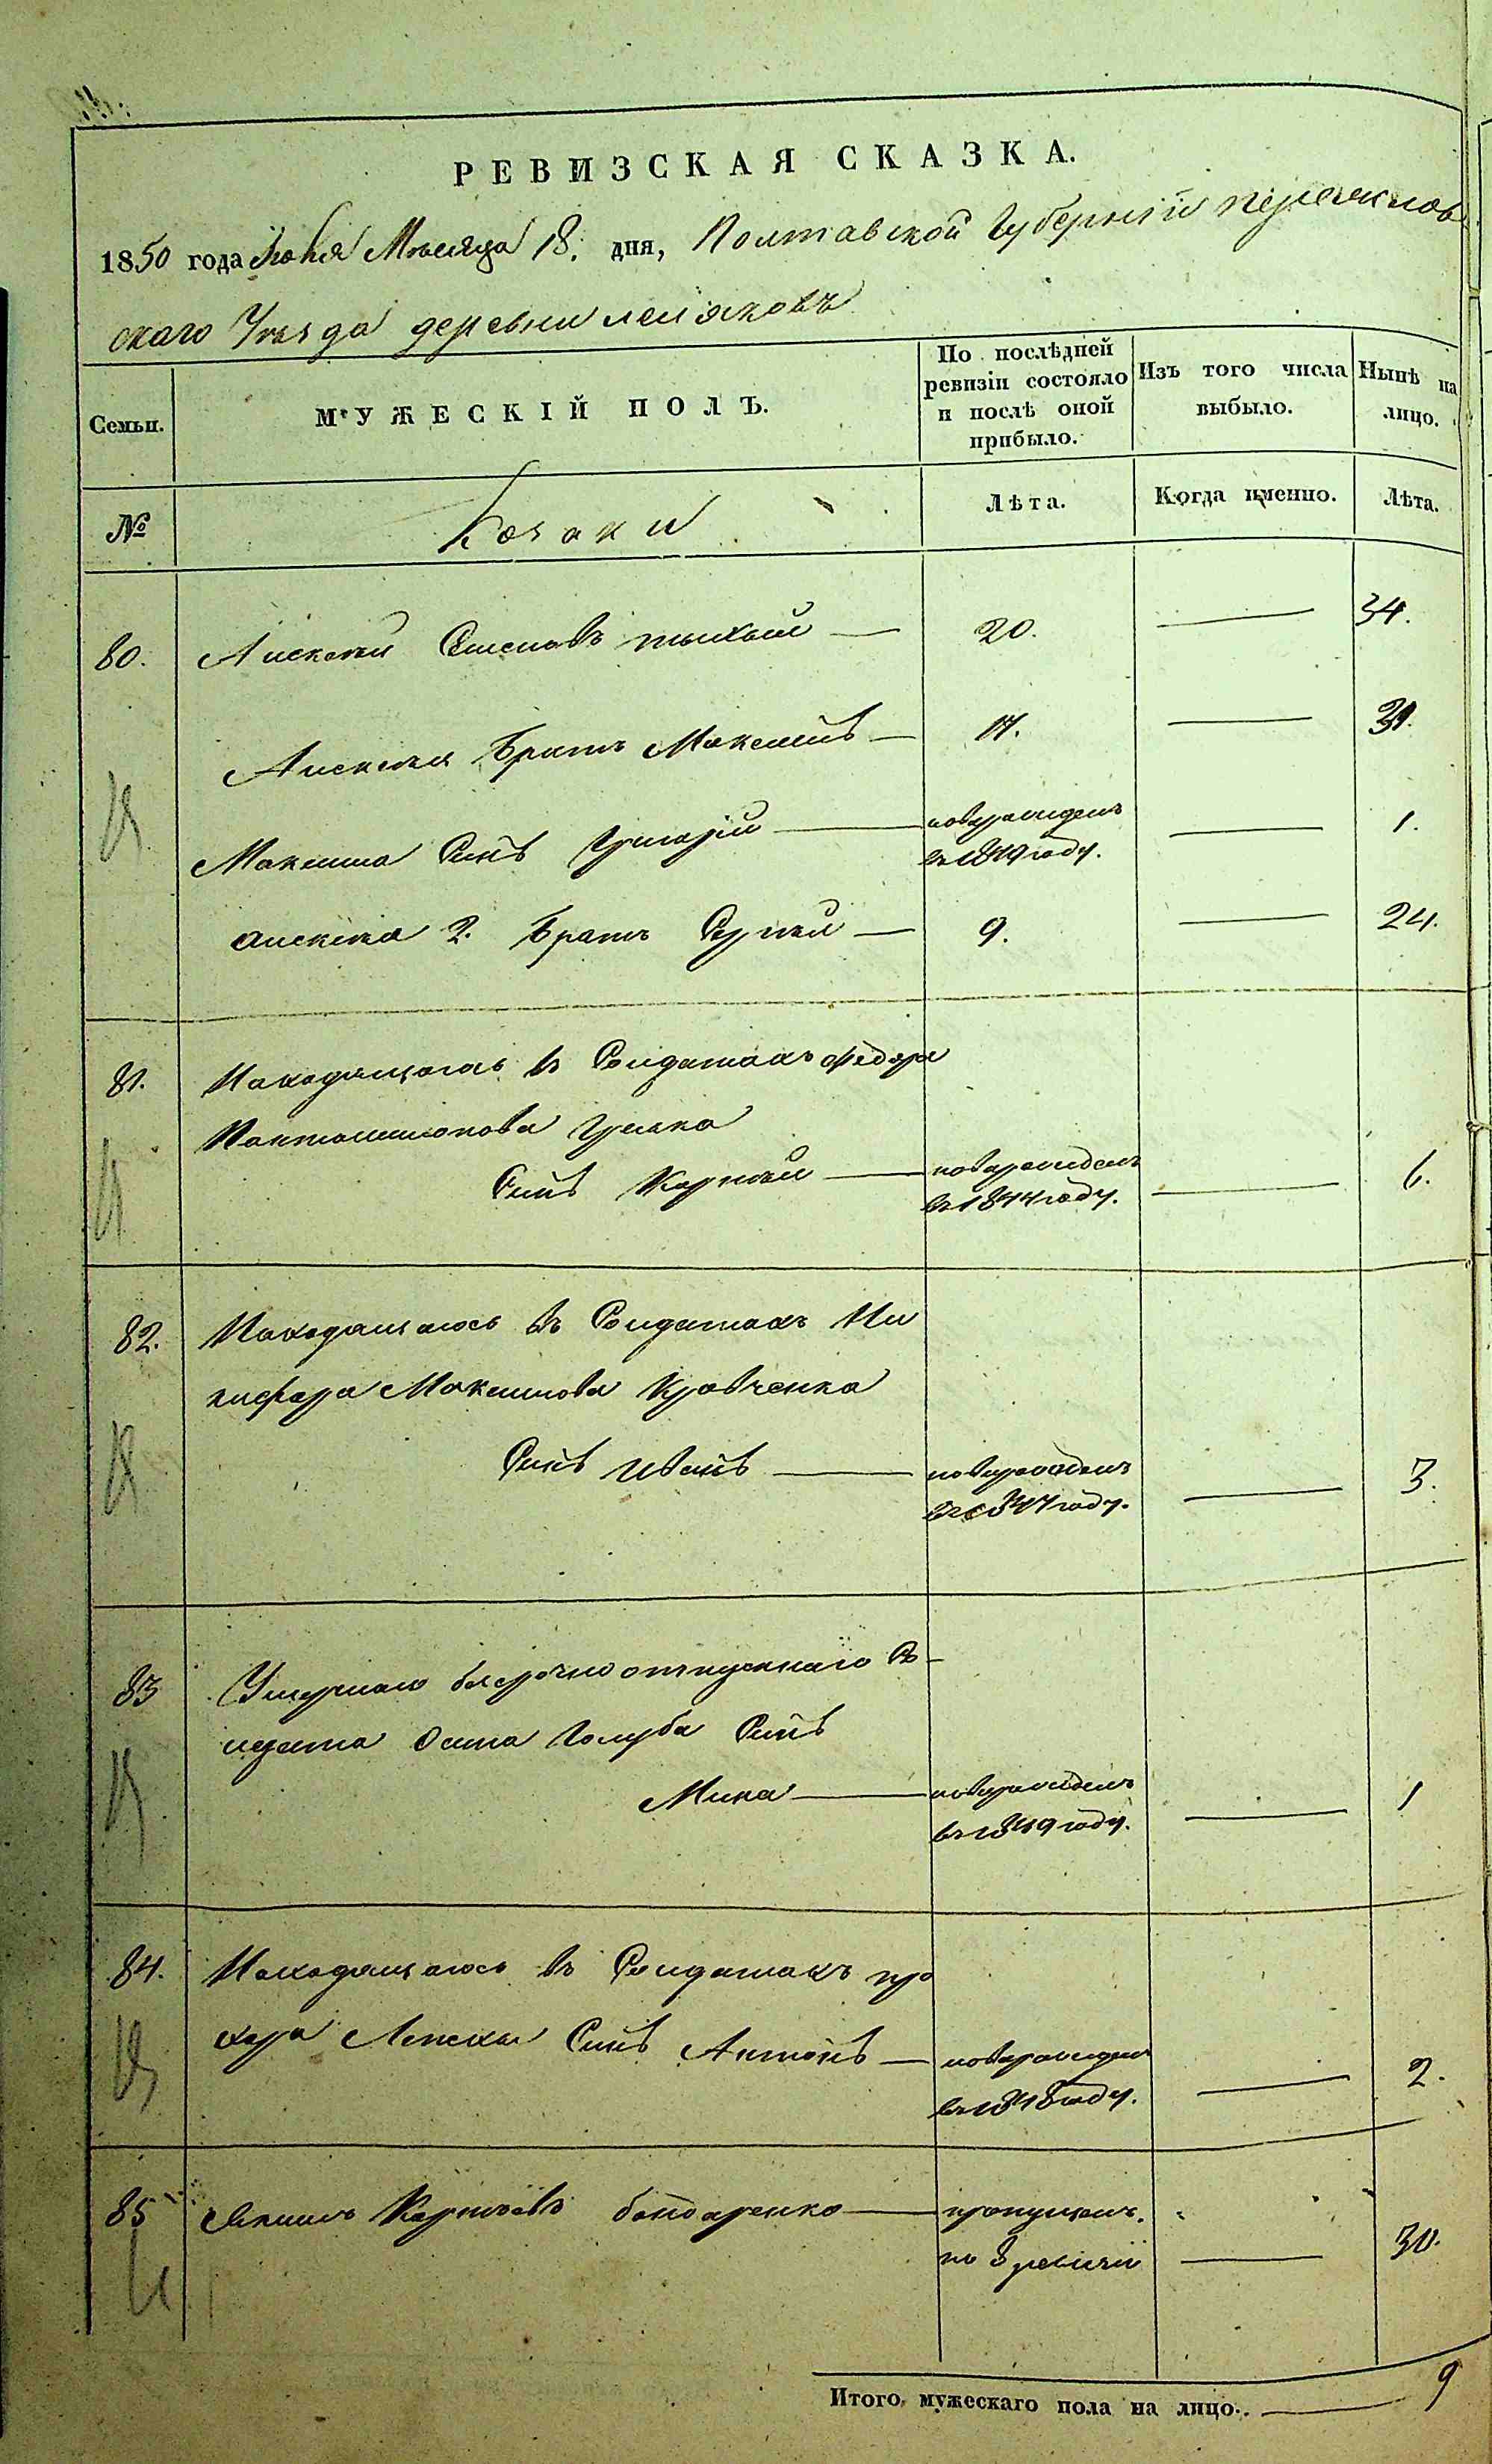 РЕВИЗСКАЯ СКАЗКА.
1850 года Июня Мѣсяца 18. дня, Полтавской Губерніи
скаго Уѣзда деревни
Семьи. МУЖЕСКІЙ ПОЛЪ. По послѣдней ревизіи состояло и послѣ оной прибыло. Изъ того числа выбыло. Нынѣ на лицо.
№ Козаки Лѣта. Когда именно. Лѣта.
80. Алексѣй Семеновъ 20. — 34.
Алексѣя Братъ Максимъ — 17. — 31.
Максима Синъ Григорій — новорожденъ — 1.
въ 1849 году.
Алексѣя 2. Братъ Сергѣй — 9. — 24.
81. Находящагось въ Солдатахъ Федора
Пантелимонова
Синъ Корнѣй — новорожденъ — 6.
въ 1844 году.
82. Находящагось въ Солдатахъ Ни
кифора Максимова Кравченка
Синъ Иванъ — новорожденъ — 3.
въ 1847 году.
83 Умершаго безсрочно отпускнаго Со-
лдата Осипа Голуба Синъ
Мина — новорожденъ — 1
въ 1849 году.
84. Находящагось въ Солдатахъ Про
хора Синъ Антонъ — новорожденъ — 2.
въ 1848 году.
85 Якимъ Корнѣевъ Бондаренко — пропущенъ.
по 8 ревизіи — 30.
Итого мужескаго пола на лицо. — 9